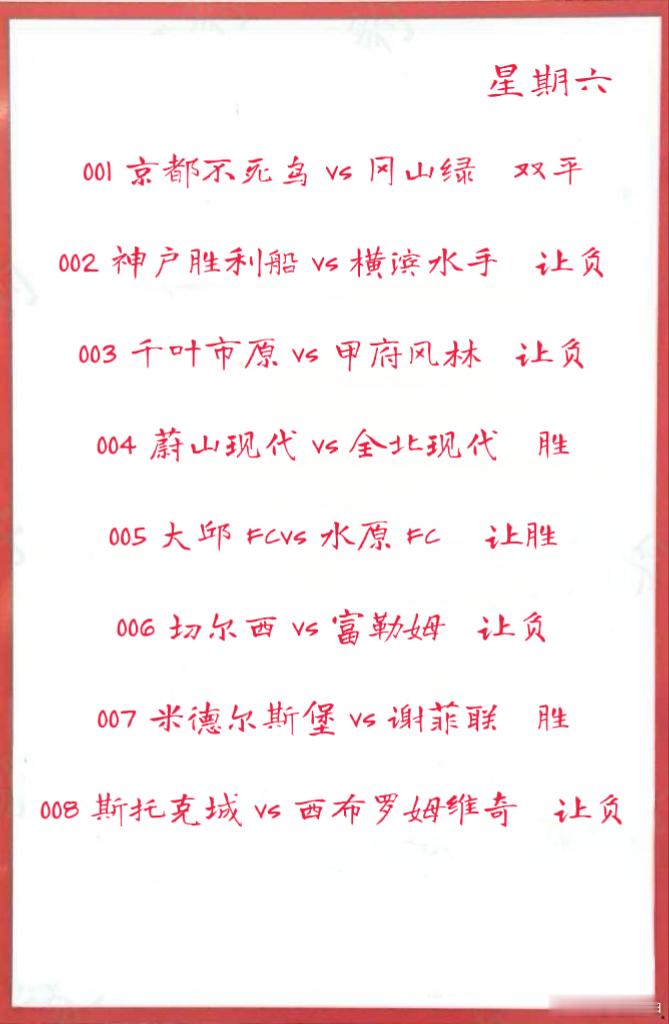 星期六
001 京都不死鸟 vs 冈山绿 双平
002 神户胜利船 vs 横滨水手 让负
003 千叶市原 vs 甲府风林 让负
004 蔚山现代 vs 全北现代 胜
005 大邱 FCvs 水原 FC 让胜
006 切尔西 vs 富勒姆 让负
007 米德尔斯堡 vs 谢菲联 胜
008 斯托克城 vs 西布罗姆维奇 让负